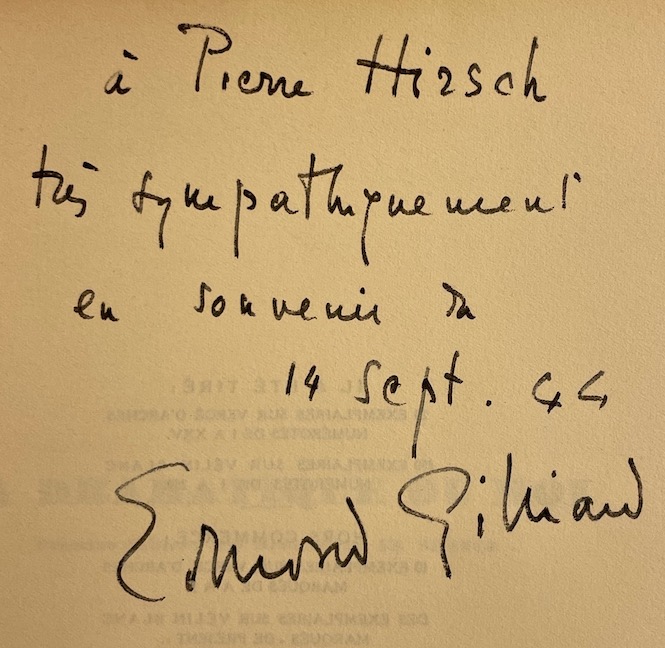 à Pierre Hirsch
très sympathiquement
en souvenir du
14 sept. 44
Edmond Gilliard
IL A ÉTÉ TIRÉ :
EXEMPLAIRES SUR VERGÉ D'ARCHES
NUMÉROTÉS DE I A XXV.
EXEMPLAIRES SUR VÉLIN BLANC
NUMÉROTÉS DE 1 A
HORS COMMERCE :
EXEMPLAIRES SUR VERGÉ D'ARCHES
MARQUÉS DE A A
DES EXEMPLAIRES SUR VÉLIN BLANC
MARQUÉS : DE PRÉSENT.